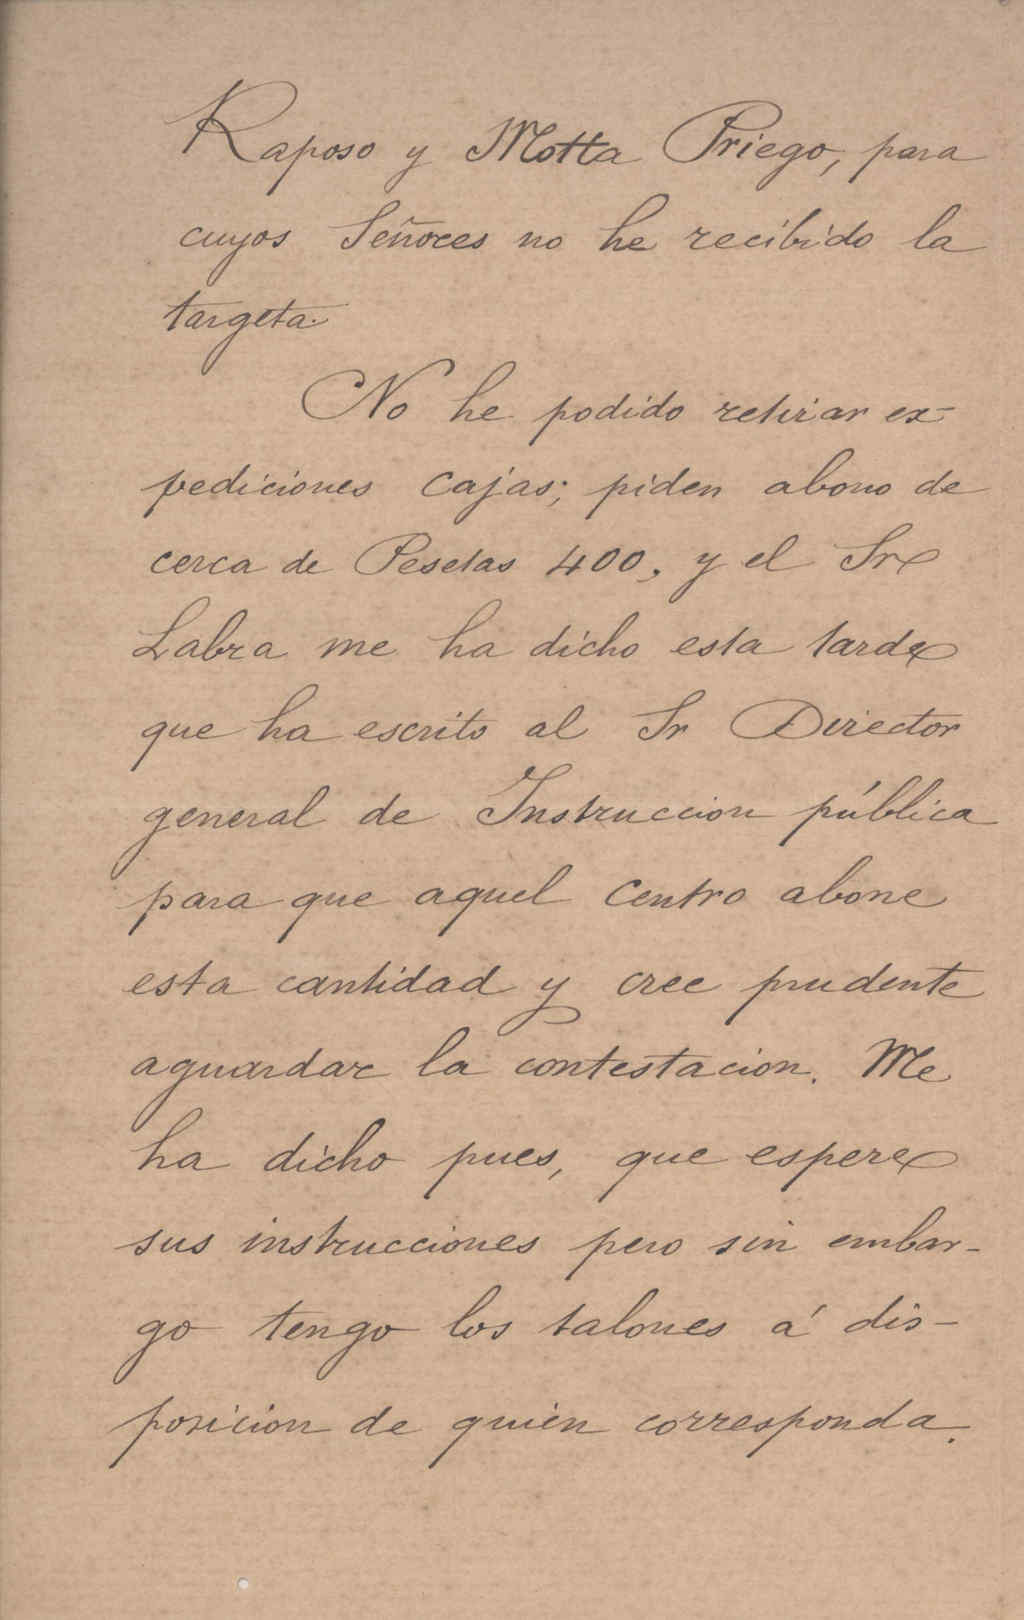 Raposo y Motta Priego, para
cuyos Señores no he recibido la
targeta.
No he podido retirar ex-
pediciones cajas; piden abono de
cerca de Pesetas 400, y el Sr
Labra me ha dicho esta tarde
que ha escrito al Sr Director
general de Instruccion pública
para que aquel Centro abone
esta cantidad y cree prudente
aguardar la contestacion. Me
ha dicho pues, que espere
sus instrucciones pero sin embar-
go tengo los talones á dis-
posicion de quien corresponda.